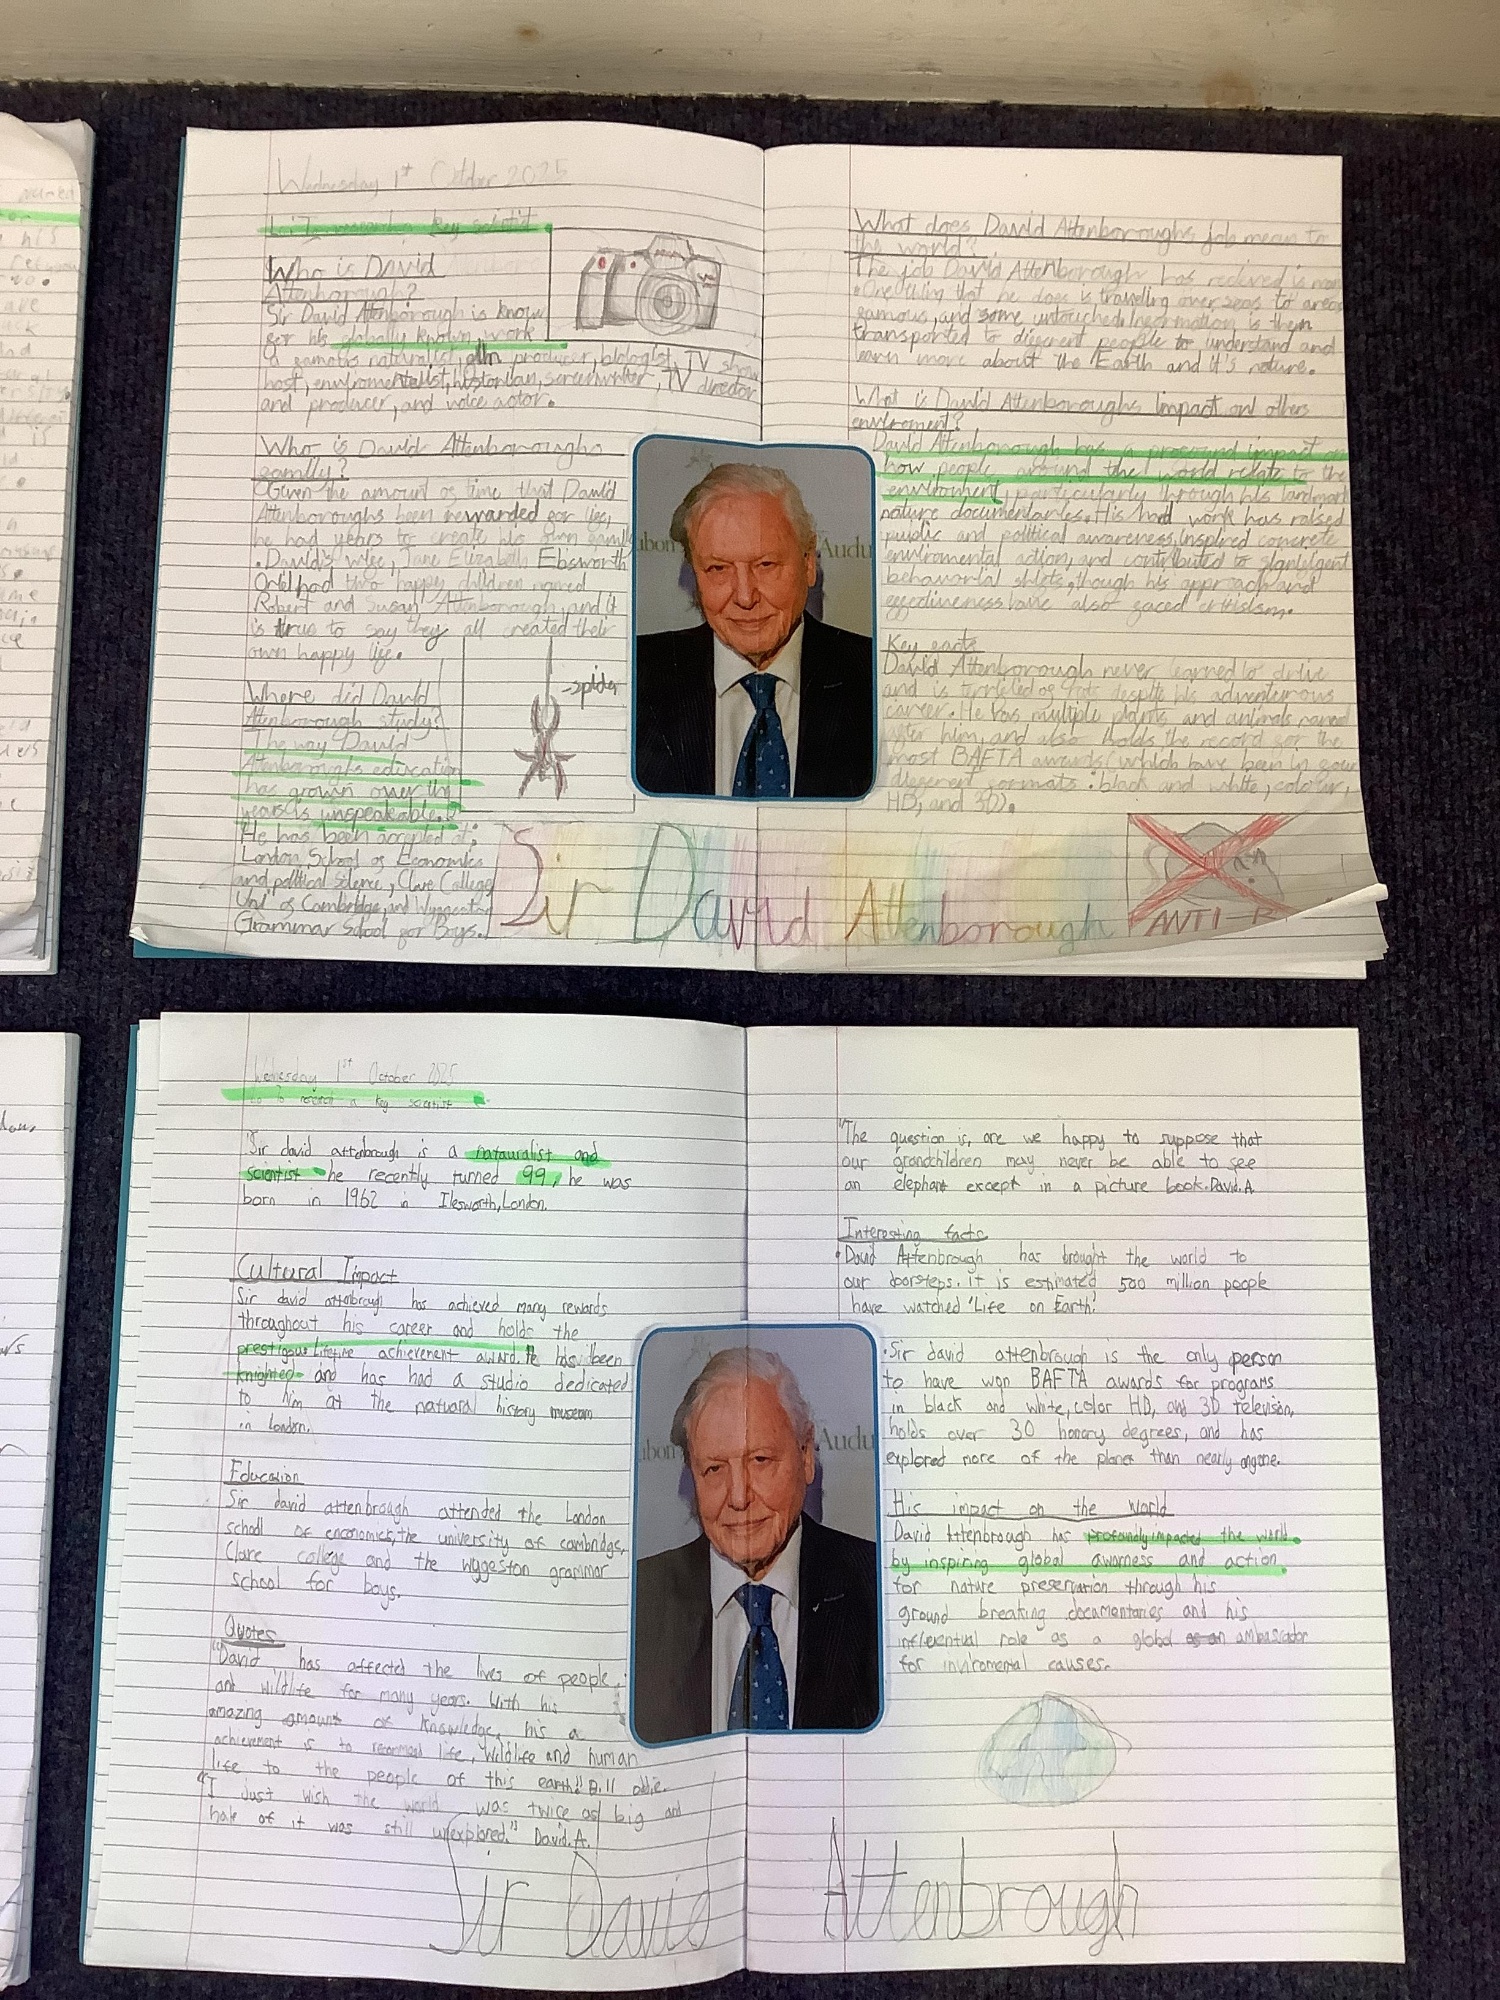 Wednesday 1st October 2025
key scientist
Who is David
Attenborough?
Sir David Attenborough is know
for his globally known work
a famous naturalist, film producer, biologist, TV show
host, enviromentalist, historian, screenwriter, TV director
and producer, and voice actor.
Who is David Attenboroughs
family?
Given the amount of time that David
Attenboroughs been rewarded for lies,
he had years to create his own family
. David's wife, Jane Elizabeth Ebsworth
Oriel had two happy children named
Robert and Susan Attenborough, and it
is true to say they all created their
own happy life.
-spider
Where did David
Attenborough study?
The way David
Attenboroughs education
has grown over the
years is unspeakable.
He has been accepted at;
London School of Economics
and political Science, Clare College
Uni of Cambridge, and Wyggeston
Grammar School for Boys.
What does David Attenboroughs job mean to
the world?
The job David Attenborough has recieved is more
. One thing that he does is traveling over seas to areas
famous, and some untouched. Information is then
transported to different people to understand and
learn more about the Earth and it's nature.
What is David Attenboroughs impact on others
enviroment?
David Attenborough has a profound impact on
how people around the world relate to the
enviroment, particularly through his landmark
nature documentaries. His hard work has raised
public and political awareness, inspired concrete
enviromental action, and contributed to
behavorial shifts, though his approach and
effectiveness have also faced critisism.
Key facts
David Attenborough never learned to drive
and is terrified of rats despite his adventurous
career. He has multiple plants and animals named
after him, and also holds the record for the
most BAFTA awards (which have been in four
different formats: black and white, colour,
HD, and 3D).
Audu
Sir David Attenborough
ANTI-R
Wednesday 1st October 2025
Lo To research a key scientist
Sir david attenbrough is a natauralist and
scientist he recently turned 99, he was
born in 1962 in Ilesworth, London.
Cultural Impact
Sir david attenbrough has achieved many rewards
throughout his career and holds the
prestigous lifetime achievement award. He has been
knighted and has had a studio dedicated
to him at the natuaral history museum
in London.
Education
Sir david attenbrough attended the London
school of enconomics, the university of cambridge,
Clare college and the wyggeston grammar
school for boys.
Quotes
"David has affected the lives of people,
and wildlife for many years. With his
amazing amount of knowledge, his a
achievement is to life, wildlife and human
life to the people of this earth!! Bill oddie.
"I just wish the world was twice as big and
half of it was still unexplored." David.A.
"The question is, are we happy to suppose that
our grandchildren may never be able to see
an elephant except in a picture book. David.A
Interesting facts
. David Attenbrough has brought the world to
our doorsteps. it is estimated 500 million people
have watched 'Life on Earth'.
. Sir david attenbrough is the only person
to have won BAFTA awards for programs
in black and white, color HD, and 3D televison,
holds over 30 honory degrees, and has
explored more of the planet than nearly anyone.
His impact on the world
David Attenbrough has profoundly impacted the world
by inspiring global awarness and action
for nature preservation through his
ground breaking documentaries and his
influential role as a global ambassador
for inviromental causes.
Audu
Sir David Attenbrough